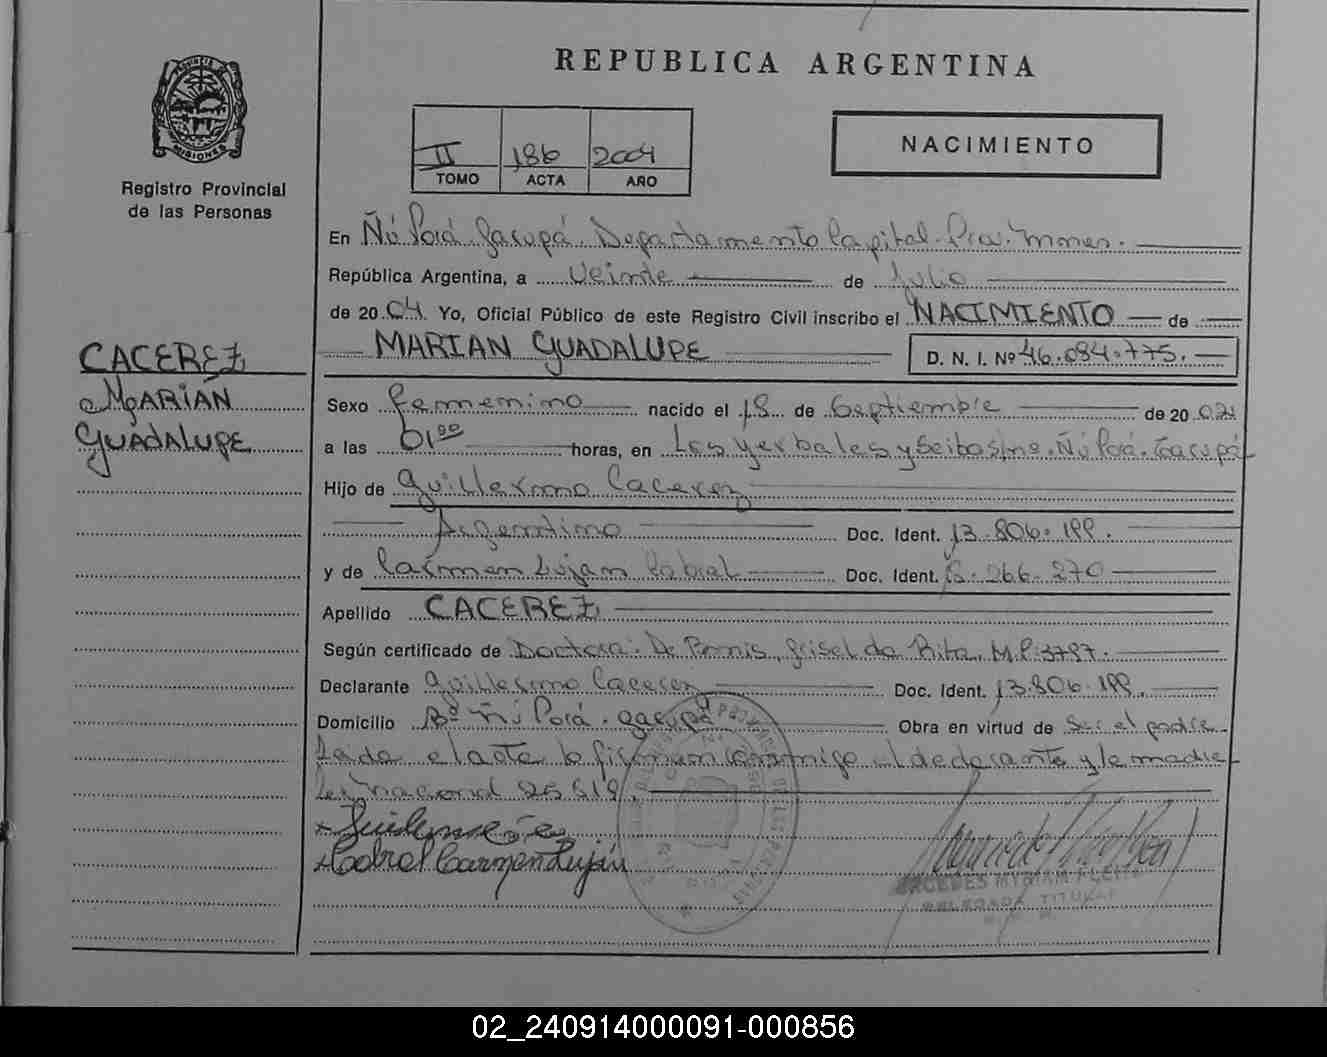 REPUBLICA ARGENTINA
PROVINCIA DE
MISIONES
Registro Provincial
de las Personas
II 186 2004
TOMO ACTA AÑO
NACIMIENTO
En Ñú Porá. Garupá. Departamento Capital. Mnes.
República Argentina, a Veinte de Julio
de 2004. Yo, Oficial Público de este Registro Civil inscribo el NACIMIENTO de
MARIAN GUADALUPE D. N. I. Nº 46.084.775.
CACEREZ
MARIAN
GUADALUPE
Sexo femenino nacido el 18 de Septiembre de 20
a las 01ºº horas, en Los yerbales y Seibo s/nº. Ñú Porá. Garupá
Hijo de Guillermo Cacerez
Argentino Doc. Ident. 13.806.199.
y de Carmen Lujan Cabral Doc. Ident. 18.266.270
Apellido CACEREZ
Según certificado de Doctora. De Bonis, Griselda Rita M.P. 3797.
Declarante Guillermo Cacerez Doc. Ident. 13.806.199.
Domicilio Bº Ñú Porá. Garupá Obra en virtud de Ser el padre
el acta lo firman conmigo el declarante y la madre
Ley nacional 25.819.
Cabral Carmen Luján
MYRIAM FLEITA
DELEGADA TITULAR
02_240914000091-000856